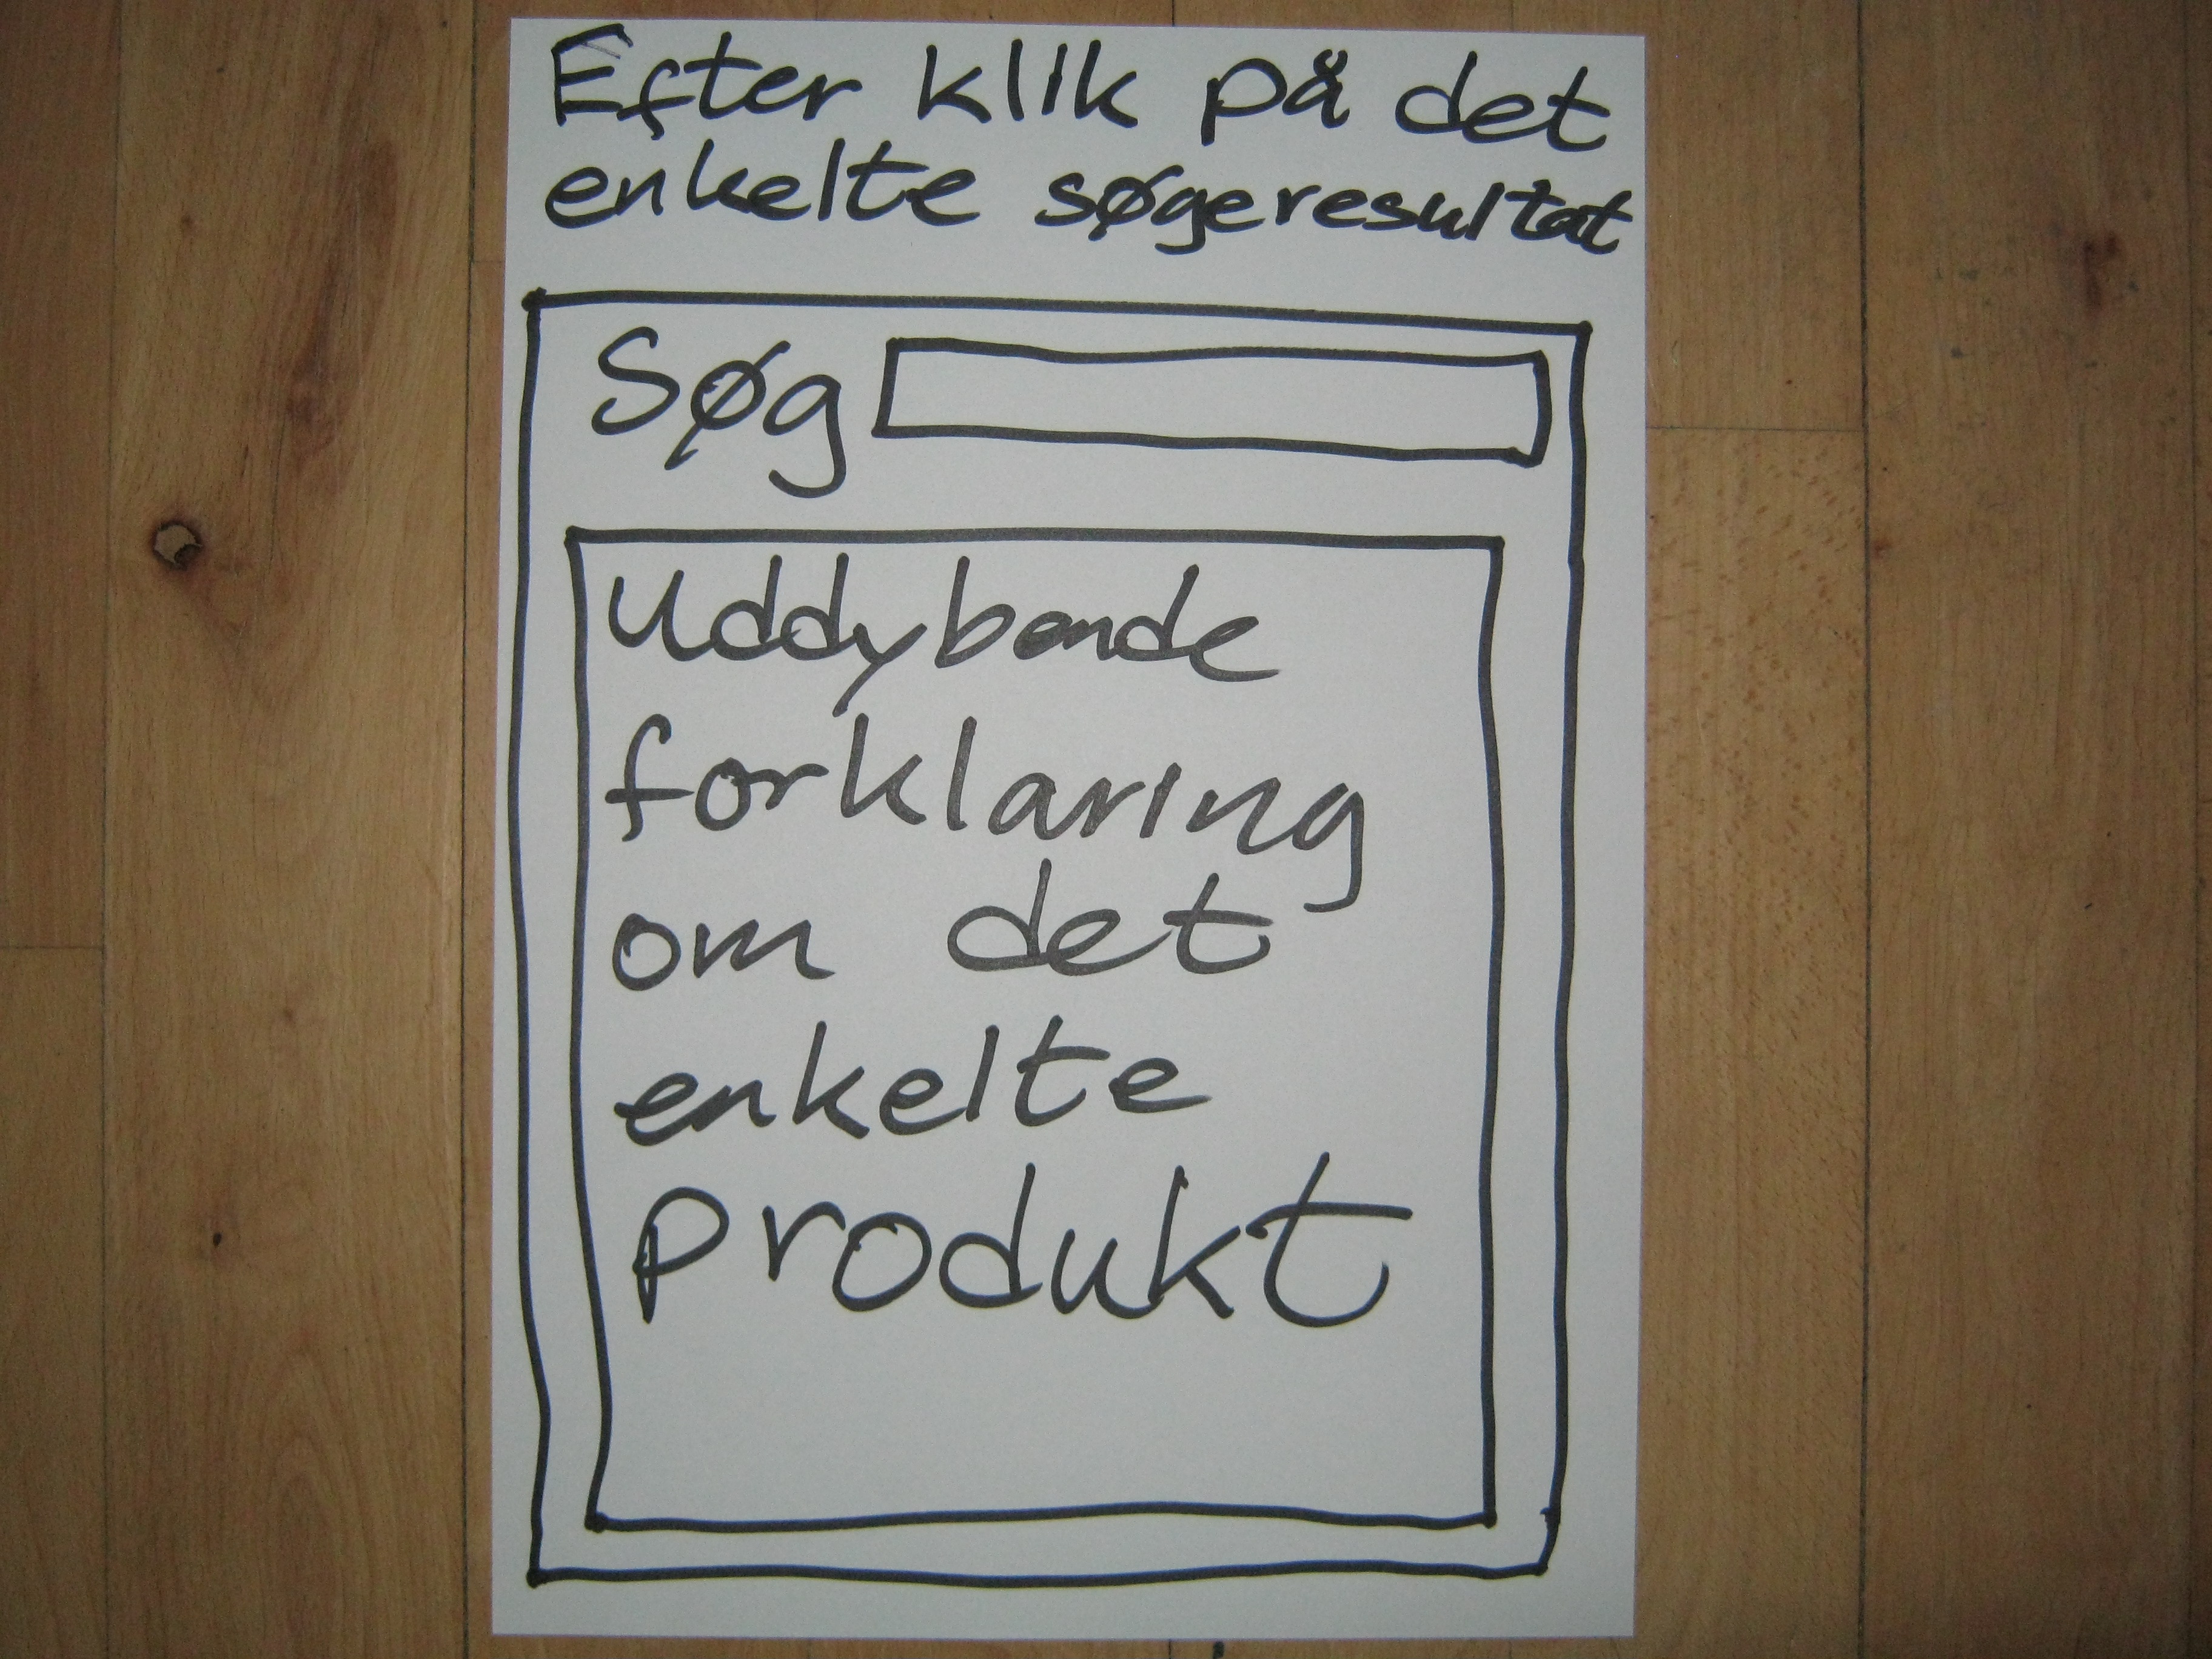 Efter klik på det
enkelte søgeresultat
Søg
Uddybende
forklaring
om det
enkelte
produkt